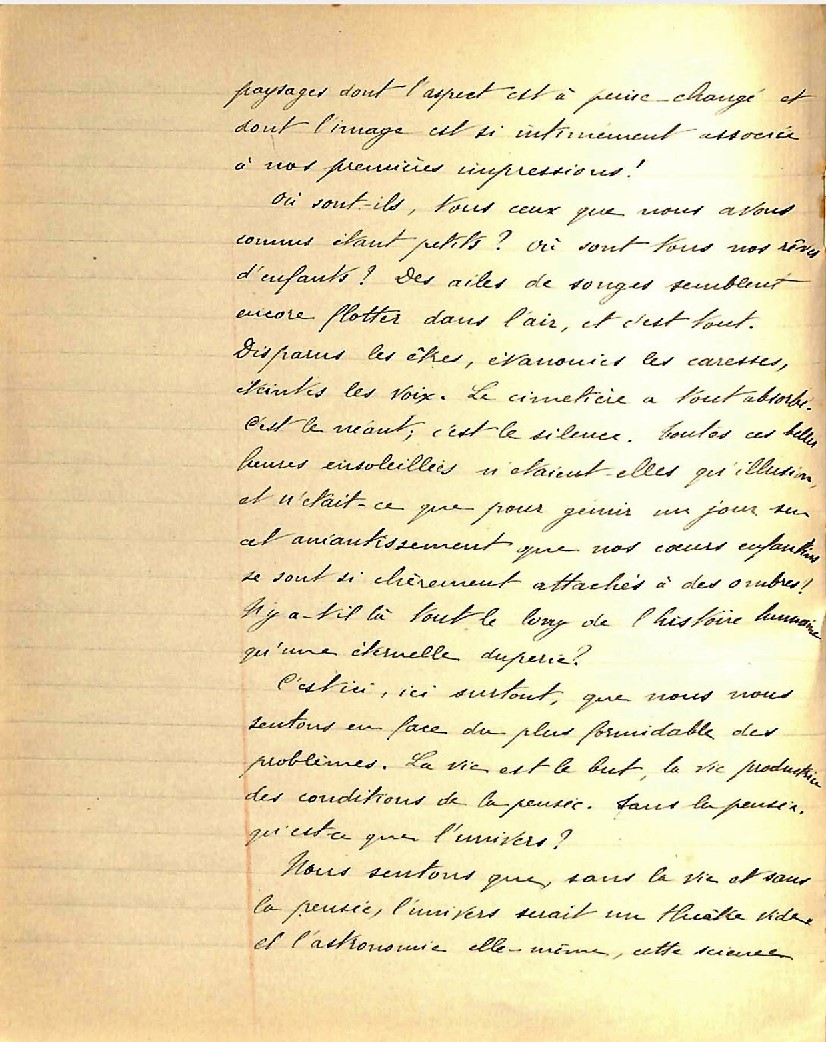 paysages dont l'aspect est à peine changé et
dont l'image est si intimement associée
à nos premières impressions !
Où sont-ils, tous ceux que nous avons
connus étant petits ? Où sont tous nos rêves
d'enfants ? Des ailes de songes semblent
encore flotter dans l'air, et c'est tout.
Disparus les êtres, évanouies les caresses,
éteintes les voix. Le cimetière a tout absorbé.
C'est le néant ; c'est le silence. Toutes ces belles
heures ensoleillées n'étaient-elles qu'illusion,
et n'était-ce que pour gémir un jour sur
cet anéantissement que nos cœurs enfantins
se sont si chèrement attachés à des ombres !
N'y a-t-il là tout le long de l'histoire humaine
qu'une éternelle duperie ?
C'est ici, ici surtout, que nous nous
sentons en face du plus formidable des
problèmes. La vie est le but, la vie productrice
des conditions de la pensée. Sans la pensée,
qu'est-ce que l'univers ?
Nous sentons que, sans la vie et sans
la pensée, l'univers serait un théâtre vide
et l'astronomie elle-même, cette science